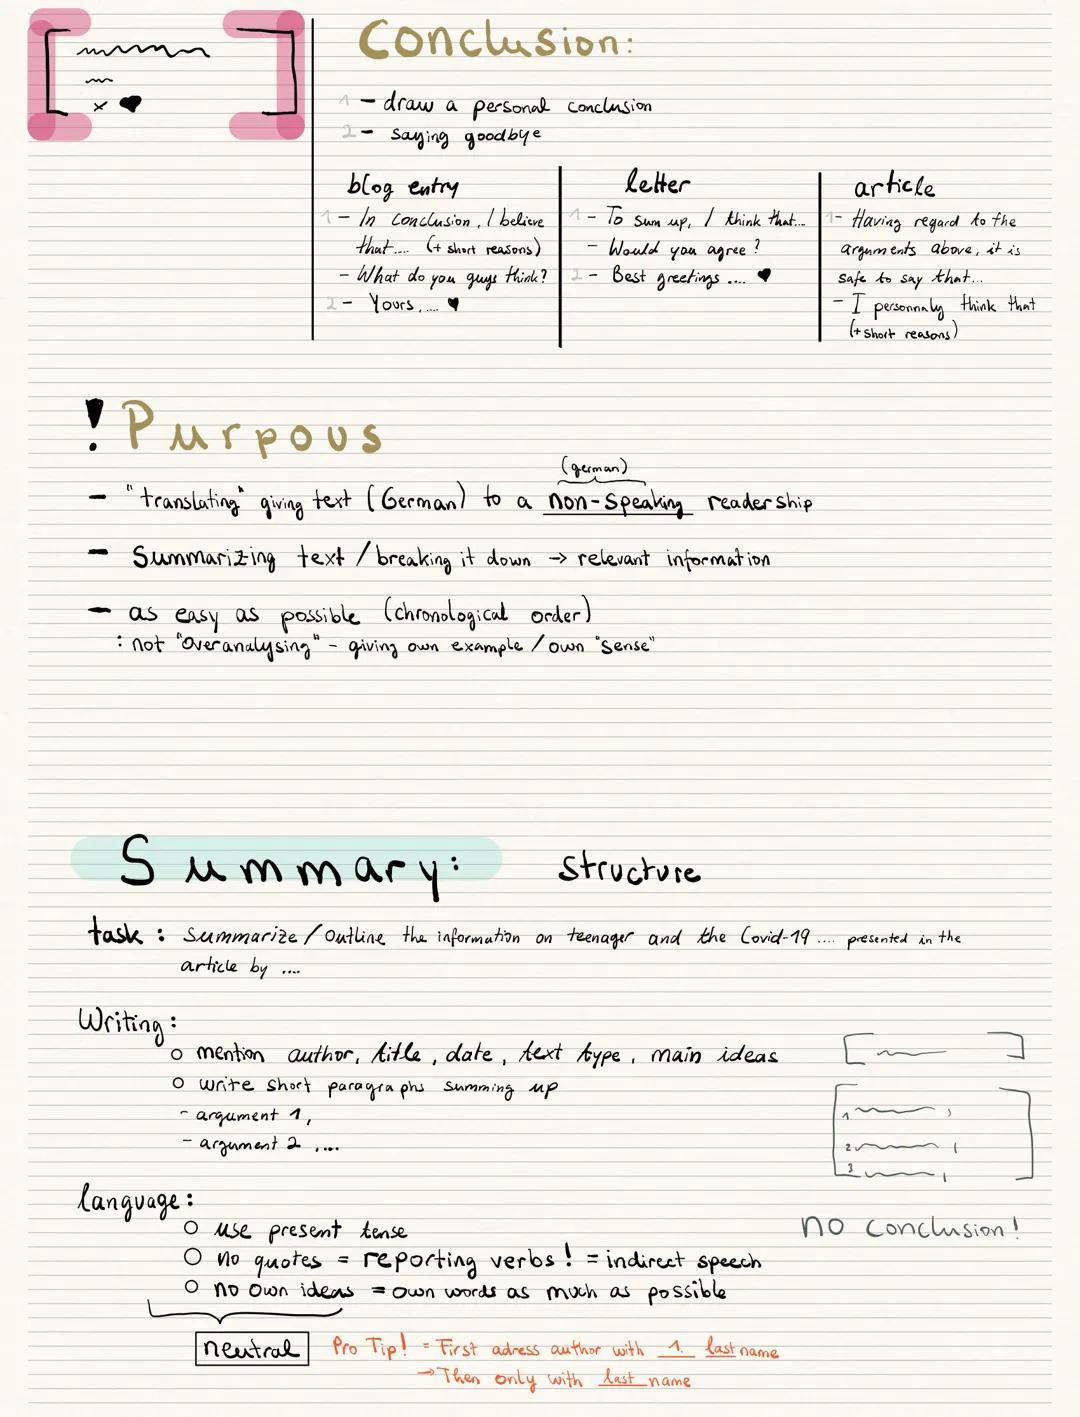 Conclusion:
1 - draw a personal conclusion
2 - saying goodbye
blog entry
1 - In conclusion, I believe
that.... (+ short reasons)
- What do you guys think?
2 - Yours,.... ♥
letter
1 - To sum up, I think that...
- Would you agree?
2 - Best greetings .... ♥
article
1 - Having regard to the
arguments above, it is
safe to say that...
- I personnaly think that
(+ short reasons)
! Purpous
(german)
- "translating" giving text (German) to a non-speaking readership
- Summarizing text / breaking it down → relevant information
- as easy as possible (chronological order)
: not "overanalysing" - giving own example / own "sense"
Summary: structure
task: Summarize / Outline the information on teenager and the Covid-19 .... presented in the
article by ....
Writing:
○ mention author, title, date, text type, main ideas
○ write short paragraphs summing up
- argument 1,
- argument 2 ,....
1
2
3
language:
○ use present tense
no conclusion!
○ no quotes = reporting verbs! = indirect speech
○ no own ideas = own words as much as possible
neutral
Pro Tip! = First adress author with 1. last name
→ Then only with last name